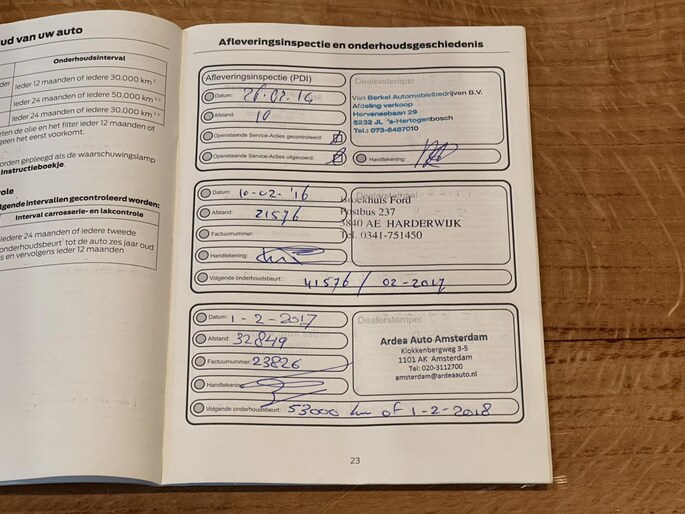 ud van uw auto
Onderhoudsinterval
der
Ieder 12 maanden of iedere 30.000 km
Ieder 24 maanden of iedere 50.000 km
Ieder 24 maanden of iedere 30.000 km
eten de olie en het filter ieder 12 maanden of
een eerst voorkomt.
orden gepleegd als de waarschuwingslamp
Instructieboekje.
role
lgende intervallen gecontroleerd worden:
Interval carrosserie- en lakcontrole
Iedere 24 maanden of iedere tweede
onderhoudsbeurt tot de auto zes jaar oud
is en vervolgens ieder 12 maanden
Afleveringsinspectie en onderhoudsgeschiedenis
Afleveringsinspectie (PDI)
Datum:
Afstand: 10
Openstaande Service-Acties gecontroleerd:
Openstaande Service-Acties uitgevoerd:
Dealerstempel
Van Berkel Automobielbedrijven B.V.
Afdeling verkoop
Hervensebaan 29
5232 JL 's-Hertogenbosch
Tel.: 073-6487010
Handtekening:
Datum: 10-02-'16
Afstand: 21576
Factuurnummer:
Handtekening:
Dealerstempel
Broekhuis Ford
Postbus 237
3840 AE HARDERWIJK
Tel. 0341-751450
Volgende onderhoudsbeurt: 41576 / 02-2017
Datum: 1-2-2017
Afstand: 32849
Factuurnummer: 23826
Handtekening:
Dealerstempel
Ardea Auto Amsterdam
Klokkenbergweg 3-5
1101 AK Amsterdam
Tel: 020-3112700
amsterdam@ardeaauto.nl
Volgende onderhoudsbeurt: 53000 km of 1-2-2018
23